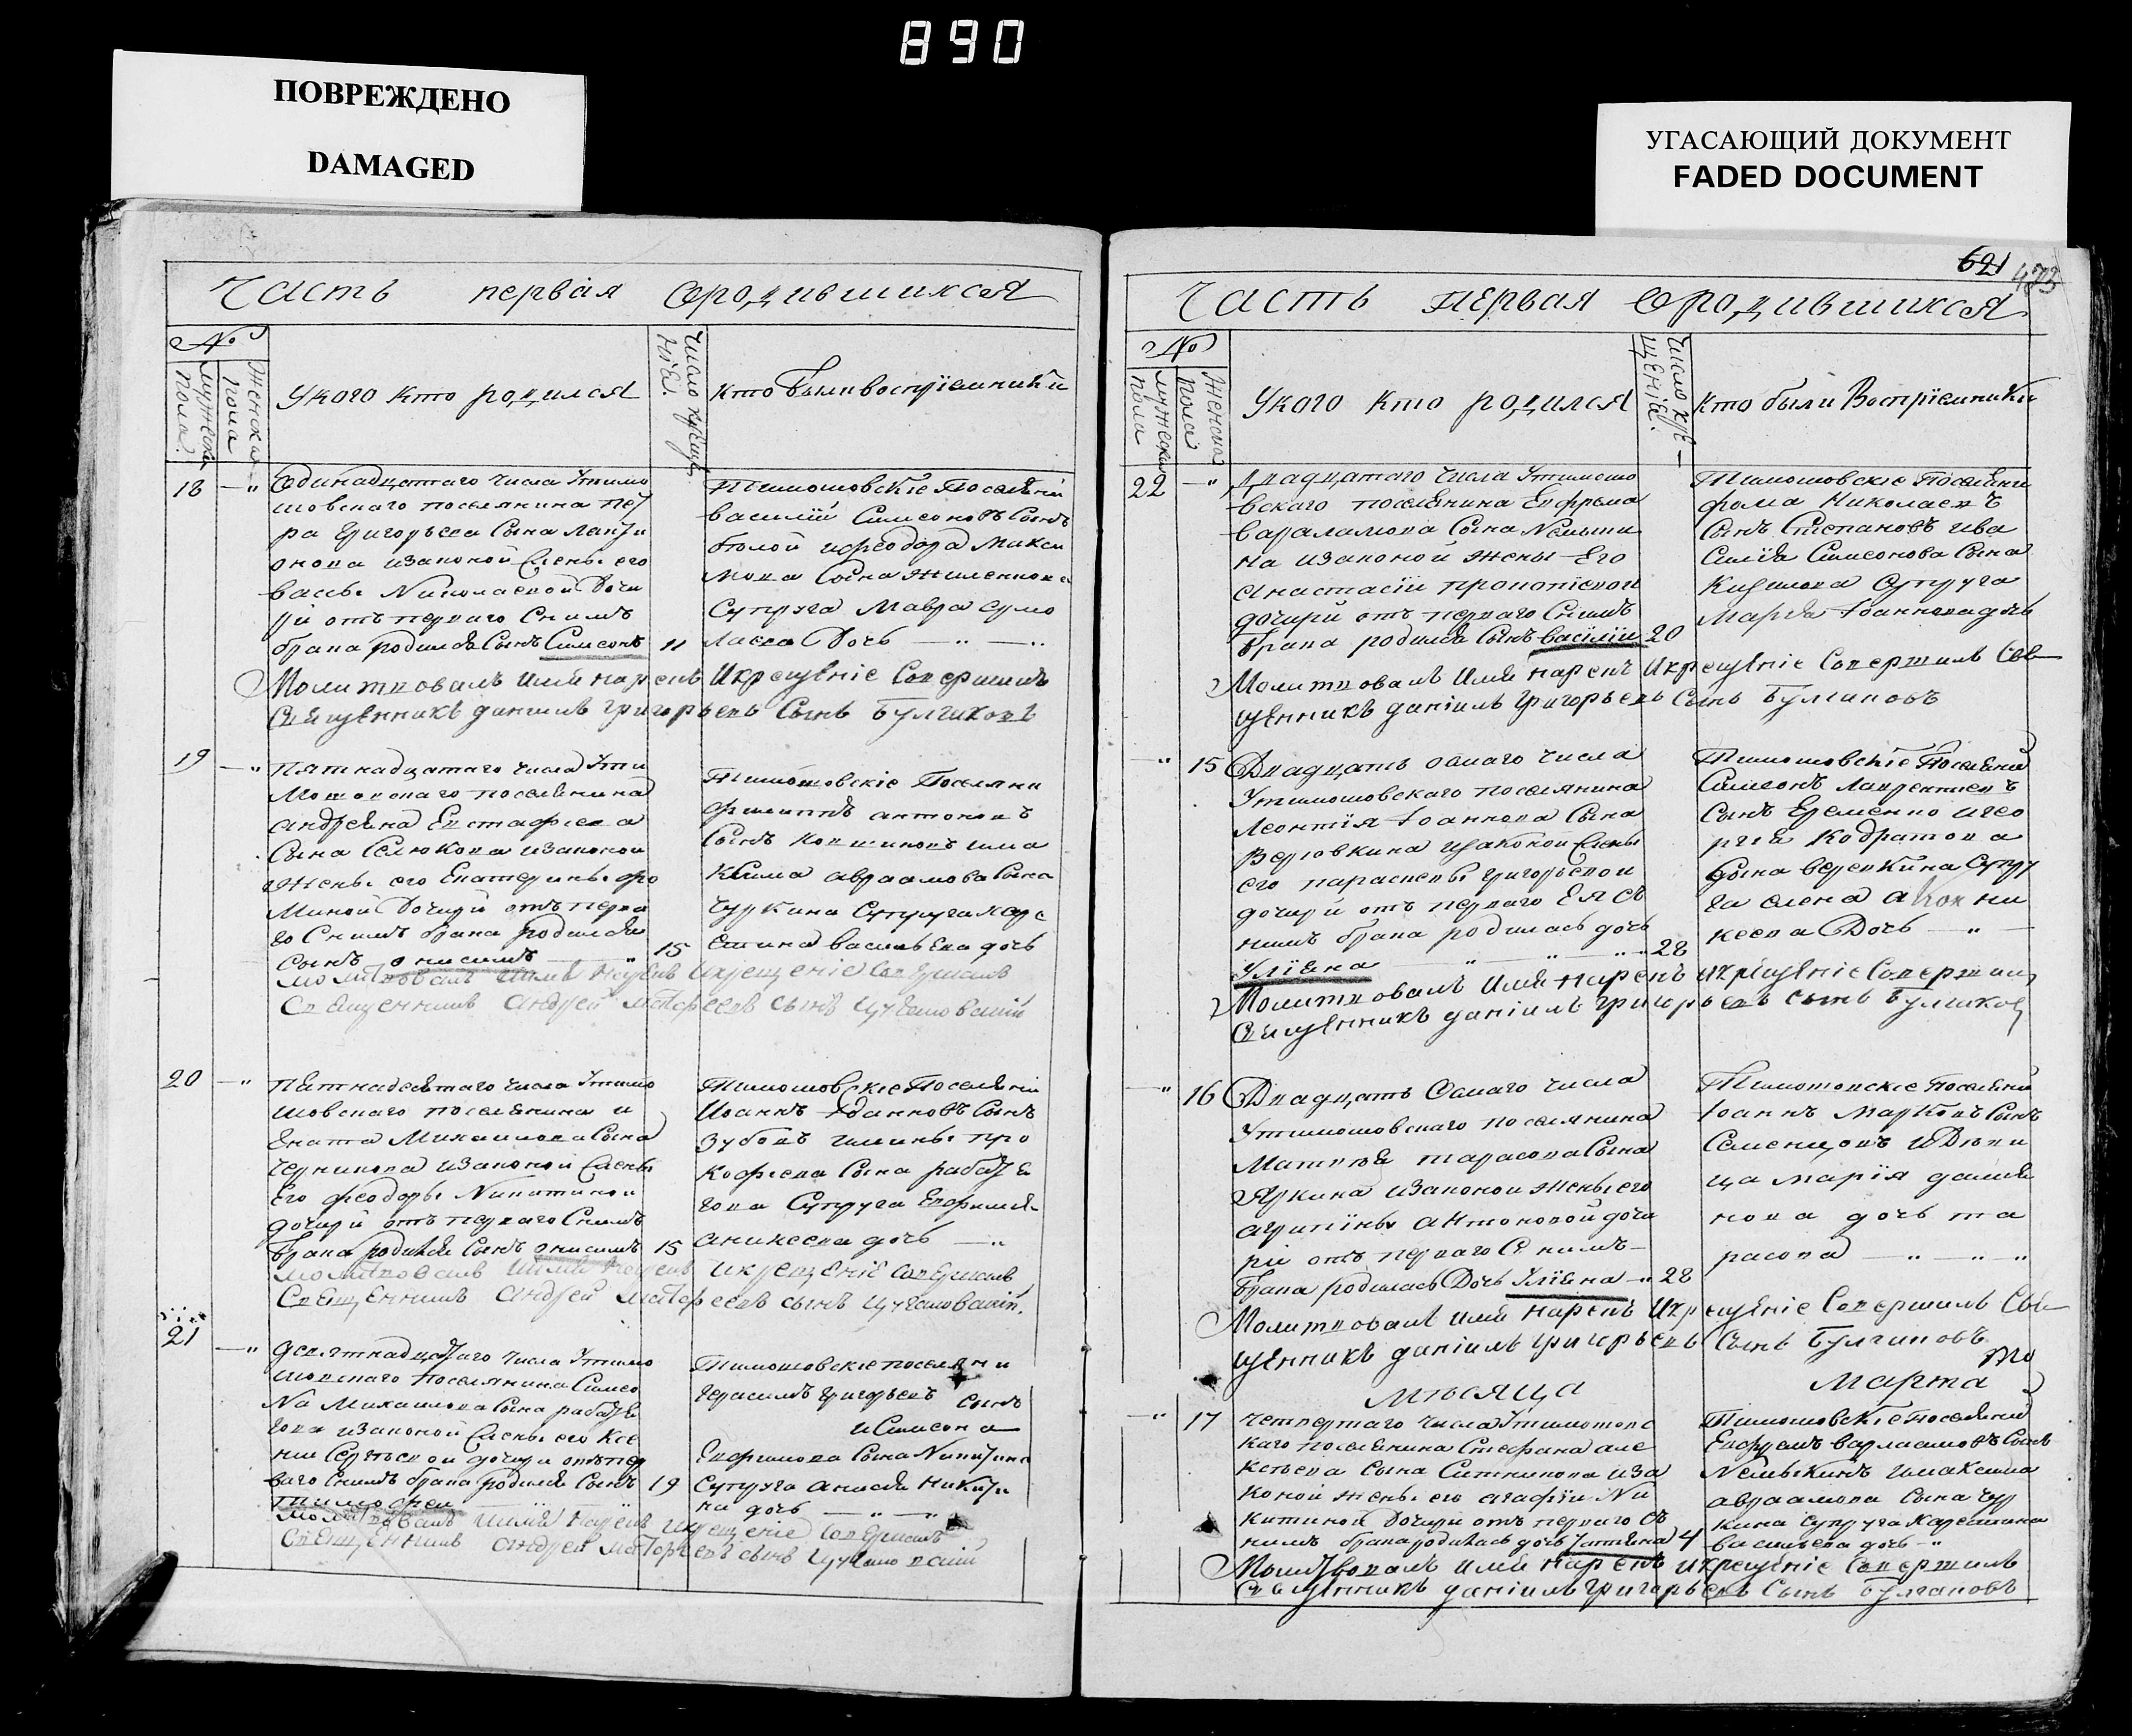 890
ПОВРЕЖДЕНО
DAMAGED
УГАСАЮЩИЙ ДОКУМЕНТ
FADED DOCUMENT
Часть первая Ородившихся
№
мужеска пола.
Женска пола
Укого кто родился
Число креще нiе.
кто были воспрiемники
18 —„
Одинадцатаго числа Утимо
шовскаго поселянина пет
ра Григорьева Сына
онова изаконой жены его
Николаевой Доче
ри отъ перваго Снимъ
брака родился Сынъ Симеонъ 11
Тимошовскiе Поселяни
василiй Симеоновъ Сынъ
ифеодора Макси
мова Сына
Супруга Мавра
Дочь — „ — „
Молитвовалъ имя нарекъ Икрещенiе Совершилъ
Священникъ данiилъ григорьевъ Сынъ Булгаковъ
19 —„
Пятнадцатаго числа Ути
Мошовскаго поселянина
андреяна Евстафиева
Сына Селюкова изаконой
жены его Екатерины фо
миной Дочери отъ перва
го Снимъ брака родился
Сынъ онисимъ — „ 15
Тимошовскiе Поселяни
филиппъ антоновъ
Сынъ има
ксима авраамова Сына
Чуркина Супруга
васильева дочь
молитвовалъ имя нарекъ икрещенiе совершилъ
Священникъ андрей матфеевъ сынъ
20 —„
Пятнадесятаго числа Утимо
шовскаго поселянина и
гната Михаилова Сына
черникова изаконой жены
Его феодоры Никитиной
дочери отъ перваго Снимъ
брака родился Сынъ онисимъ 15
Тимошовскiе Поселяни
Иоаннъ Иоанновъ Сынъ
Зубовъ имины про
кофиева Сына рабатя
гова Супруга Евфимия
аникеева дочь — „
молитвовалъ имя нарекъ икрещенiе совершилъ
Священникъ андрей матфеевъ сынъ
21 —„
Девятнадцатаго числа Утимо
шовскаго поселянина Симео
на Михаилова Сына рабатя
гова изаконой жены его Ксе
нии Сергѣевой дочери отъ пер
ваго Снимъ брака родился Сынъ 19
тимофей
Тимошовскiе поселяни
герасимъ григорьевъ сынъ
иСимеона
Евфимова Сына
Супруга анисия никити
на дочь — „ — „
молитвовалъ имя нарекъ икрещенiе совершилъ
Священникъ андрей матфеевъ сынъ
621 473
Часть первая Ородившихся
№
мужеска пола
Женска пола
Укого кто родился
Число кре щенiе.
кто были Воспрiемники
22 —„
Двадцатаго числа Утимошо
вскаго поселянина Евфрема
варламова Сына Немыки
на изаконой жены Его
анастасiи прокопiевой
дочери отъ перваго Снимъ
брака родился Сынъ василiй 20
Тимошовскiе Поселяни
фома Николаевъ
Сынъ Степановъ ива
силiя Симеонова Сына
Супруга
Марфа Иоаннова дочь
Молитвовалъ имя нарекъ Икрещенiе Совершилъ Свя
щенникъ данiилъ григорьевъ Сынъ Булгаковъ
—„ 15
Двадцать осмаго числа
Утимошовскаго поселянина
Леонтiя Iоаннова Сына
Веровкина изаконой жены
его параскевы григорьевой
дочери отъ перваго Ея съ
нимъ брака родилась дочь
Улiяна — „ — „ — „ 28
Тимошовскiе Поселяни
Симеонъ Лаврентиевъ
Сынъ Еременко игео
ргiя Кодратова
Сына веревкина Супру
га елена
Дочь — „ —
Молитвовалъ имя нарекъ икрещенiе Совершилъ
Священникъ данiилъ григорьевъ сынъ Булгаков
—„ 16
Двадцать Осмаго числа
Утимошовскаго поселянина
Матвѣя тарасова Сына
Яркина изаконой жены его
агрипiны антоновой доче
рiи отъ перваго Снимъ —
брака родилась Дочь Улiяна —„ 28
Тимошовскiе Поселяни
Iоаннъ Марковъ Сынъ
Семенцовъ иДеви
ца Марiя
нова дочь та
расова — „ — „ — „
Молитвовалъ имя нарекъ Икрещенiе Совершилъ Свя
щенникъ данiилъ григорьевъ Сынъ Булгаковъ
Мѣсяца Марта
—„ 17
Четвертаго числа Утимошовс
каго поселянина Стефана але
ксѣева Сына Ситникова иза
коной жены его агафiи Ни
китиной Дочери отъ перваго съ
нимъ брака родилась дочь татiяна 4
Тимошовскiе Поселяни
Евфремъ варламовъ Сынъ
Немыкинъ имаксима
авраамова Сына чур
кина Супруга
васильева дочь —„
Молитвовалъ имя нарекъ икрещенiе Совершилъ
Священникъ данiилъ григорьевъ Сынъ Булгаковъ